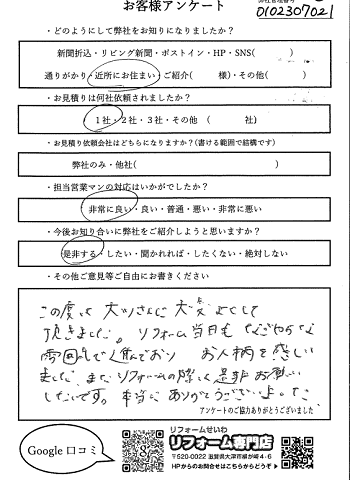 お客様アンケート
弊社管理番号
0102307021
・どのようにして弊社をお知りになりましたか？
新聞折込・リビング新聞・ポストイン・HP・SNS(　　　)
通りがかり・近所にお住まい・ご紹介(　　　様)・その他(　　　)
・お見積りは何社依頼されましたか？
1社・2社・3社・その他（　　　社)
・お見積り依頼会社はどちらになりますか？(書ける範囲で結構です)
弊社のみ・他社(　　　)
・担当営業マンの対応はいかがでしたか？
非常に良い・良い・普通・悪い・非常に悪い
・今後お知り合いに弊社をご紹介しようと思いますか？
是非する・したい・聞かれれば・したくない・絶対しない
・その他ご意見等ご自由にお書きください
この度は大川さんに大変よくして
頂きました。リフォーム当日も
お人柄を感じ
ました。またリフォームの際は是非お願い
したいです。本当にありがとうございました。
アンケートのご協力ありがとうございました
Google 口コミ
リフォームせいわ
リフォーム専門店
〒520-0022 滋賀県大津市柳が崎4-6
HPからのお問合せはこちらからどうぞ▶